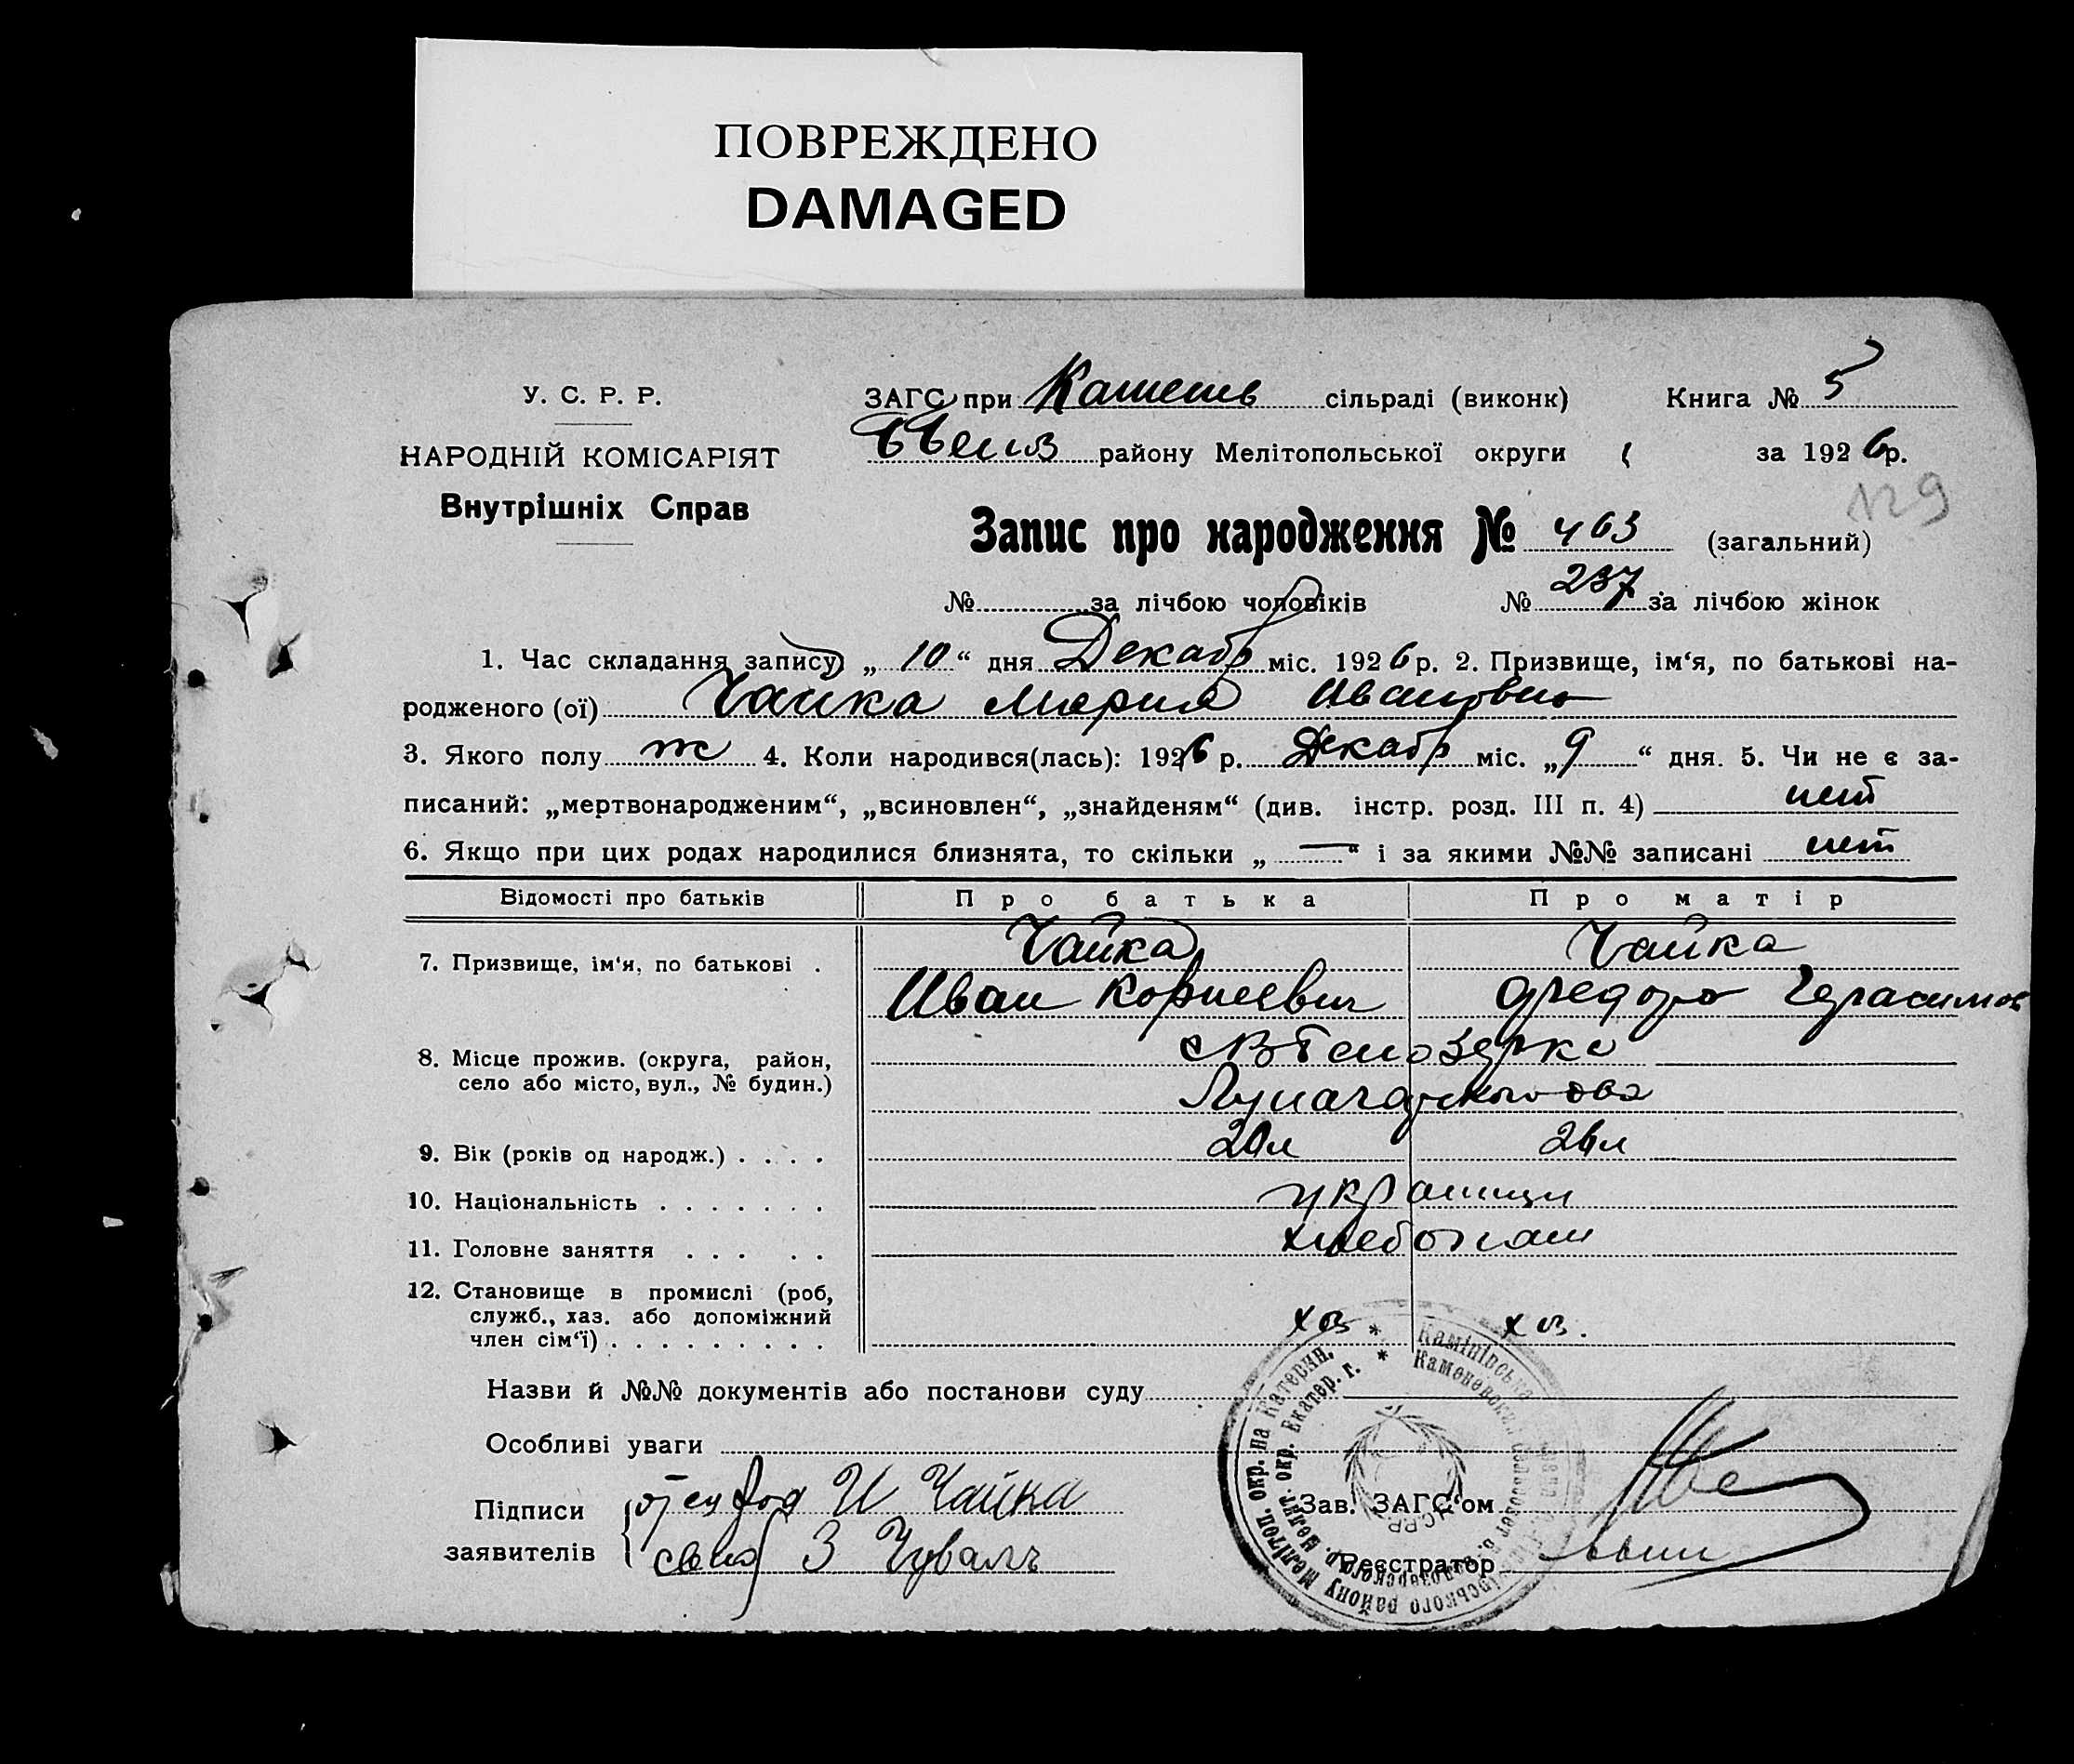 ПОВРЕЖДЕНО
DAMAGED
У. С. Р. Р.
НАРОДНІЙ КОМІСАРІЯТ
Внутрішніх Справ
ЗАГС при Каменъ сільраді (виконк) Книга № 5
району Мелітопольської округи за 1926 р.
129
Запис про народження № 463 (загальний)
№ за лічбою чоловіків № 237 за лічбою жінок
1. Час складання запису „ 10 “ дня Декабр міс. 1926 р. 2. Призвище, ім‘я, по батькові на-
родженого (ої) Чайка Мария Ивановна
3. Якого полу ж 4. Коли народився(лась): 1926 р. Декабр міс. „ 9 “ дня. 5. Чи не є за-
писаний: „мертвонародженим“, „всиновлен“, „знайденям“ (див. інстр. розд. III п. 4) нет
6. Якщо при цих родах народилися близнята, то скільки „ — “ і за якими №№ записані нет
Відомості про батьків Про батька Про матір
7. Призвище, ім‘я, по батькові . Чайка Чайка
Иван Корнеевич Федора Герасимов
8. Місце прожив. (округа, район,
село або місто, вул., № будин.)
9. Вік (років од народж.) . . . . 20л 26л
10. Національність . . . . . . . украинци
11. Головне заняття . . . . . хлебопаш
12. Становище в промислі (роб,
служб., хаз. або допоміжний
член сім‘ї) . . . . . . . . . хоз хоз.
Назви й №№ документів або постанови суду
Особливі уваги
Підписи
заявителів
отец И Чайка
З Чувалъ
Зав. ЗАГС‘ом
Реєстратор